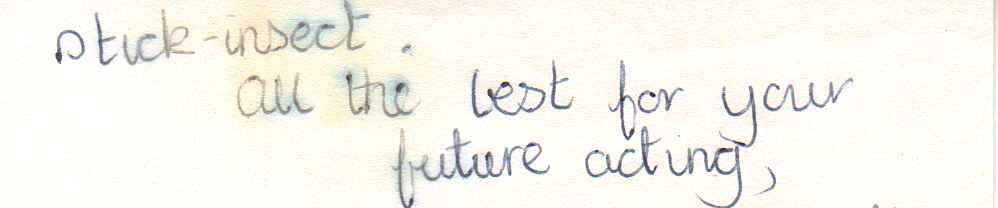 stick-insect.
All the best for your
future acting,